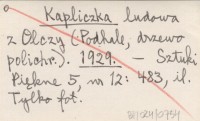 Kapliczka ludowa
z Olczy (Podhale, drzewo
polichr.). 1929. — Sztuki
Piękne 5 nr 12: 483, il.
Tylko fot.